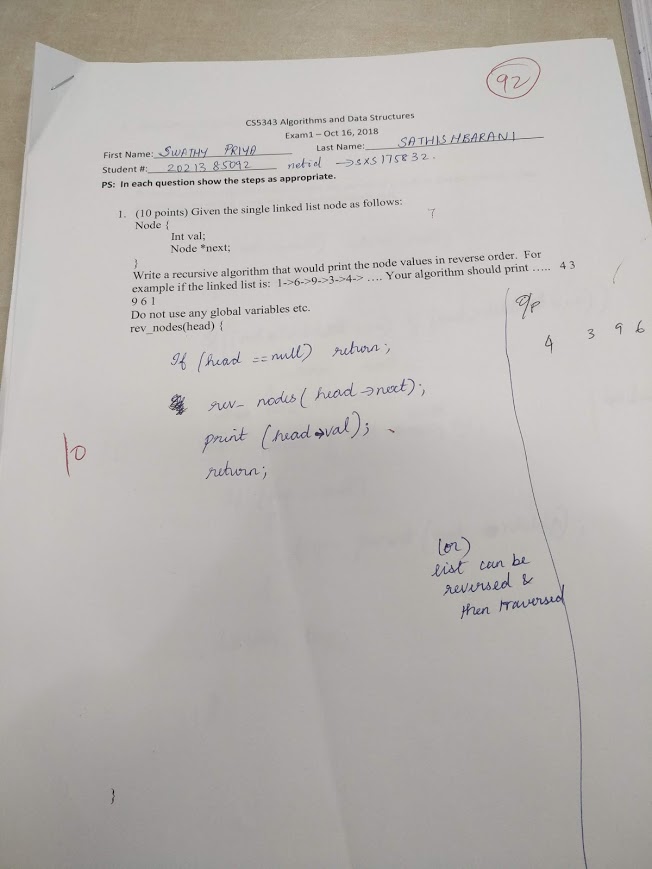 92
CS5343 Algorithms and Data Structures
Exam1 – Oct 16, 2018
First Name: SWATHY PRIYA Last Name: SATHISHBARANI
Student #: 20213 85092 netid → SXS175832.
PS: In each question show the steps as appropriate.
1. (10 points) Given the single linked list node as follows:
7
Node {
Int val;
Node *next;
}
Write a recursive algorithm that would print the node values in reverse order. For
example if the linked list is: 1->6->9->3->4-> .... Your algorithm should print ..... 4 3
9 6 1
Do not use any global variables etc.
rev_nodes(head) {
o/p
4 3 9 6
If (head == null) return;
rev_ nodes (head → next);
print (head → val);
return;
10
(or)
list can be
reversed &
then traversed
}